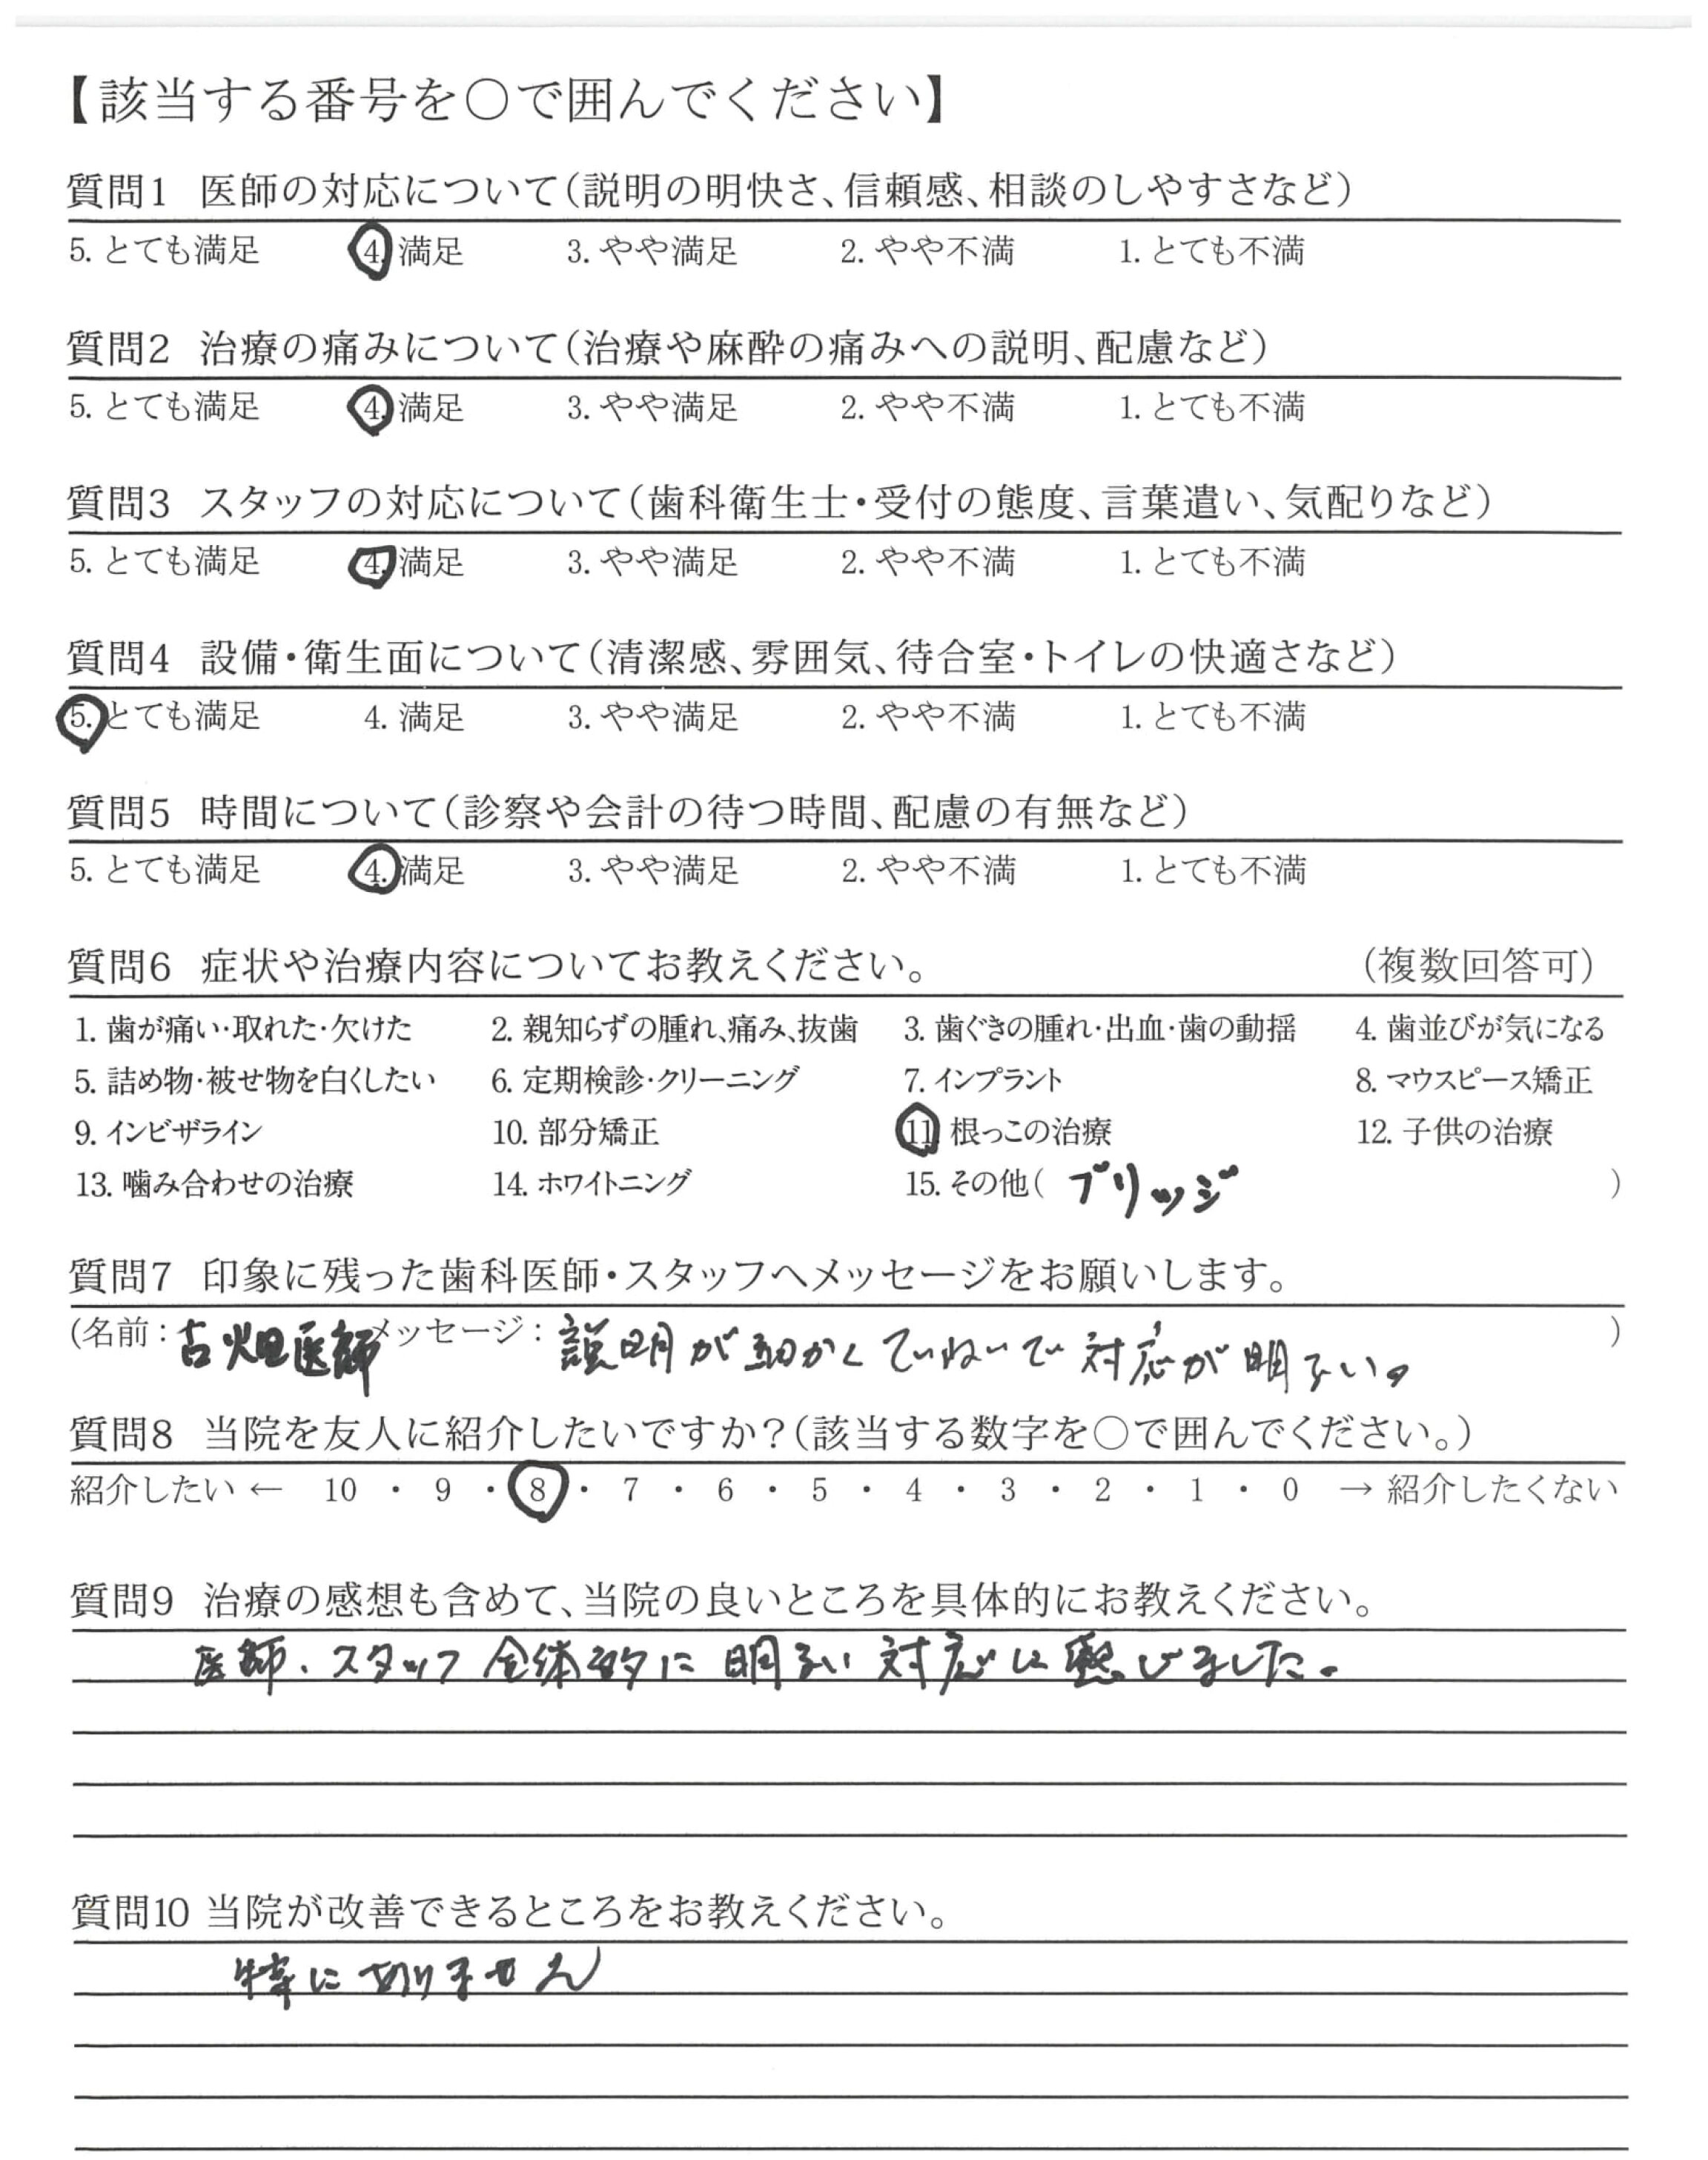 【該当する番号を〇で囲んでください】
質問1 医師の対応について(説明の明快さ、信頼感、相談のしやすさなど)
5. とても満足 4. 満足 3. やや満足 2. やや不満 1. とても不満
質問2 治療の痛みについて(治療や麻酔の痛みへの説明、配慮など)
5. とても満足 4. 満足 3. やや満足 2. やや不満 1. とても不満
質問3 スタッフの対応について(歯科衛生士・受付の態度、言葉遣い、気配りなど)
5. とても満足 4. 満足 3. やや満足 2. やや不満 1. とても不満
質問4 設備・衛生面について(清潔感、雰囲気、待合室・トイレの快適さなど)
5. とても満足 4. 満足 3. やや満足 2. やや不満 1. とても不満
質問5 時間について(診察や会計の待つ時間、配慮の有無など)
5. とても満足 4. 満足 3. やや満足 2. やや不満 1. とても不満
質問6 症状や治療内容についてお教えください。 (複数回答可)
1. 歯が痛い・取れた・欠けた 2. 親知らずの腫れ、痛み、抜歯 3. 歯ぐきの腫れ・出血・歯の動揺 4. 歯並びが気になる
5. 詰め物・被せ物を白くしたい 6. 定期検診・クリーニング 7. インプラント 8. マウスピース矯正
9. インビザライン 10. 部分矯正 11. 根っこの治療 12. 子供の治療
13. 噛み合わせの治療 14. ホワイトニング 15. その他( ブリッジ )
質問7 印象に残った歯科医師・スタッフへメッセージをお願いします。
(名前: 古畑医師 メッセージ: 説明が細かくていねいで対応が明るい。 )
質問8 当院を友人に紹介したいですか?(該当する数字を〇で囲んでください。)
紹介したい ← 10 ・ 9 ・ 8 ・ 7 ・ 6 ・ 5 ・ 4 ・ 3 ・ 2 ・ 1 ・ 0 → 紹介したくない
質問9 治療の感想も含めて、当院の良いところを具体的にお教えください。
医師、スタッフ全体的に明るい対応に感じました。
質問10 当院が改善できるところをお教えください。
特にありません